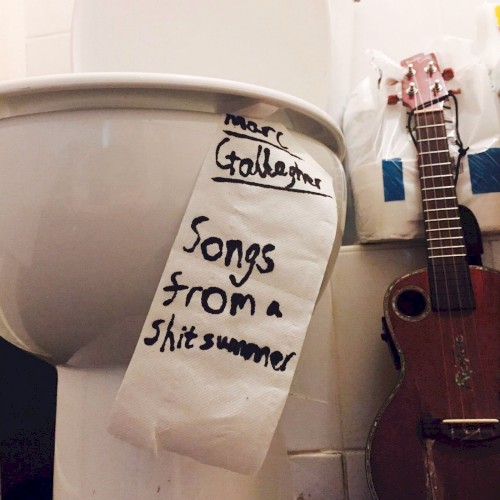 marc
Gallagher
Songs
from a
shitsummer